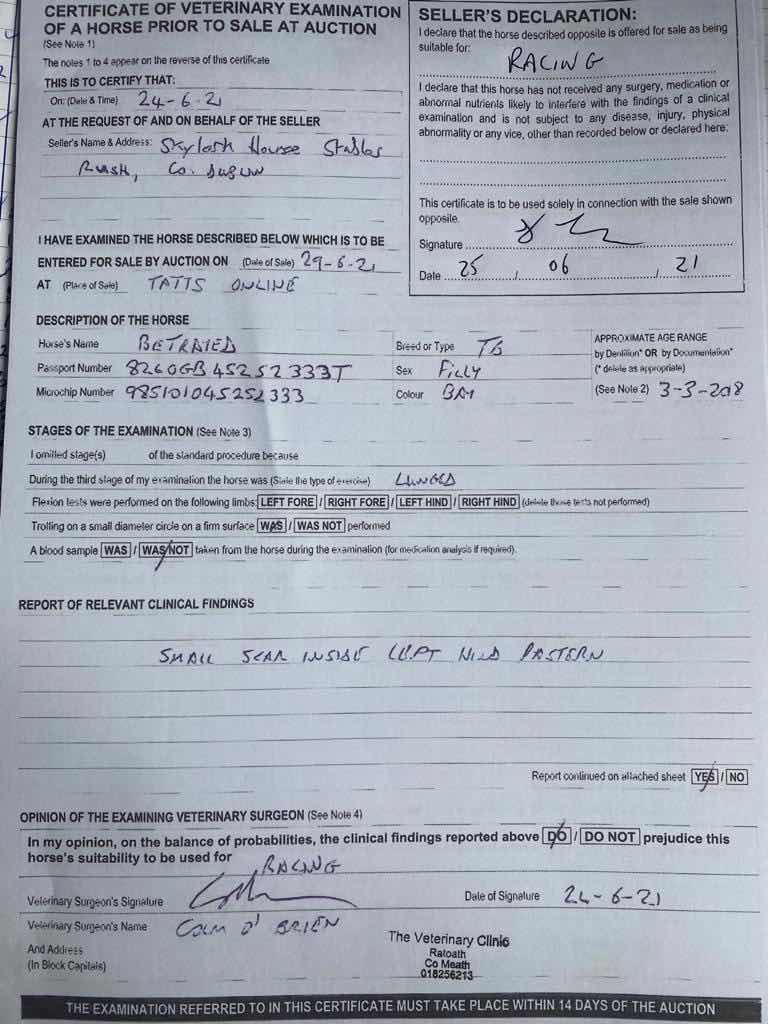 CERTIFICATE OF VETERINARY EXAMINATION
OF A HORSE PRIOR TO SALE AT AUCTION
(See Note 1)
The notes 1 to 4 appear on the reverse of this certificate
THIS IS TO CERTIFY THAT:
On: (Date & Time) 24-6-21
AT THE REQUEST OF AND ON BEHALF OF THE SELLER
Seller's Name & Address: Skylark House Stables
Rush, Co. Dublin
I HAVE EXAMINED THE HORSE DESCRIBED BELOW WHICH IS TO BE
ENTERED FOR SALE BY AUCTION ON (Date of Sale) 29-6-21
AT (Place of Sale) TATTS ONLINE
SELLER'S DECLARATION:
I declare that the horse described opposite is offered for sale as being
suitable for:
RACING
I declare that this horse has not received any surgery, medication or
abnormal nutrients likely to interfere with the findings of a clinical
examination and is not subject to any disease, injury, physical
abnormality or any vice, other than recorded below or declared here:
This certificate is to be used solely in connection with the sale shown
opposite.
Signature
Date 25 / 06 / 21
DESCRIPTION OF THE HORSE
Horse's Name BETRAYED Breed or Type TB
Passport Number 8260GB45252333T Sex FILLY
Microchip Number 985101045252333 Colour BAY
APPROXIMATE AGE RANGE
by Dentition* OR by Documentation*
(* delete as appropriate)
(See Note 2) 3-3-2018
STAGES OF THE EXAMINATION (See Note 3)
I omitted stage(s) of the standard procedure because
During the third stage of my examination the horse was (State the type of exercise) LUNGED
Flexion tests were performed on the following limbs: LEFT FORE / RIGHT FORE / LEFT HIND / RIGHT HIND (delete those tests not performed)
Trotting on a small diameter circle on a firm surface WAS / WAS NOT performed
A blood sample WAS / WAS NOT taken from the horse during the examination (for medication analysis if required).
REPORT OF RELEVANT CLINICAL FINDINGS
SMALL SCAR INSIDE LEFT HIND PASTERN
Report continued on attached sheet YES / NO
OPINION OF THE EXAMINING VETERINARY SURGEON (See Note 4)
In my opinion, on the balance of probabilities, the clinical findings reported above DO / DO NOT prejudice this
horse's suitability to be used for RACING
Veterinary Surgeon's Signature Date of Signature 24-6-21
Veterinary Surgeon's Name COLM O'BRIEN
And Address
(In Block Capitals)
The Veterinary Clinic
Ratoath
Co Meath
018256213
THE EXAMINATION REFERRED TO IN THIS CERTIFICATE MUST TAKE PLACE WITHIN 14 DAYS OF THE AUCTION